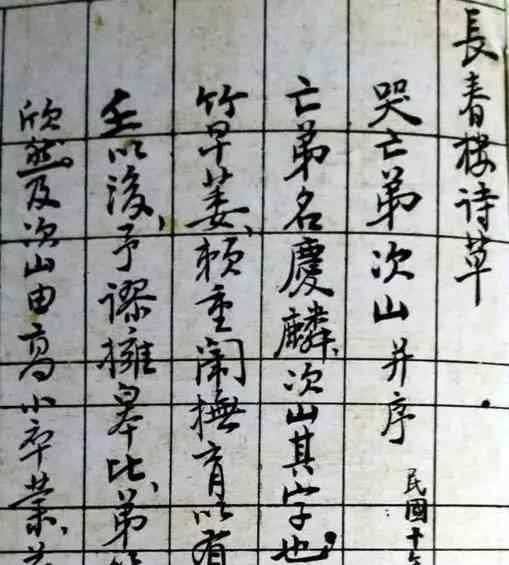 長春楼诗草
哭亡弟次山并序 民國十年
亡弟名慶麟、次山其字也、
竹早萎、頼重闱撫育以有
壬以後、予謬擁皋比、弟
欣然。及次山由高小卒業、